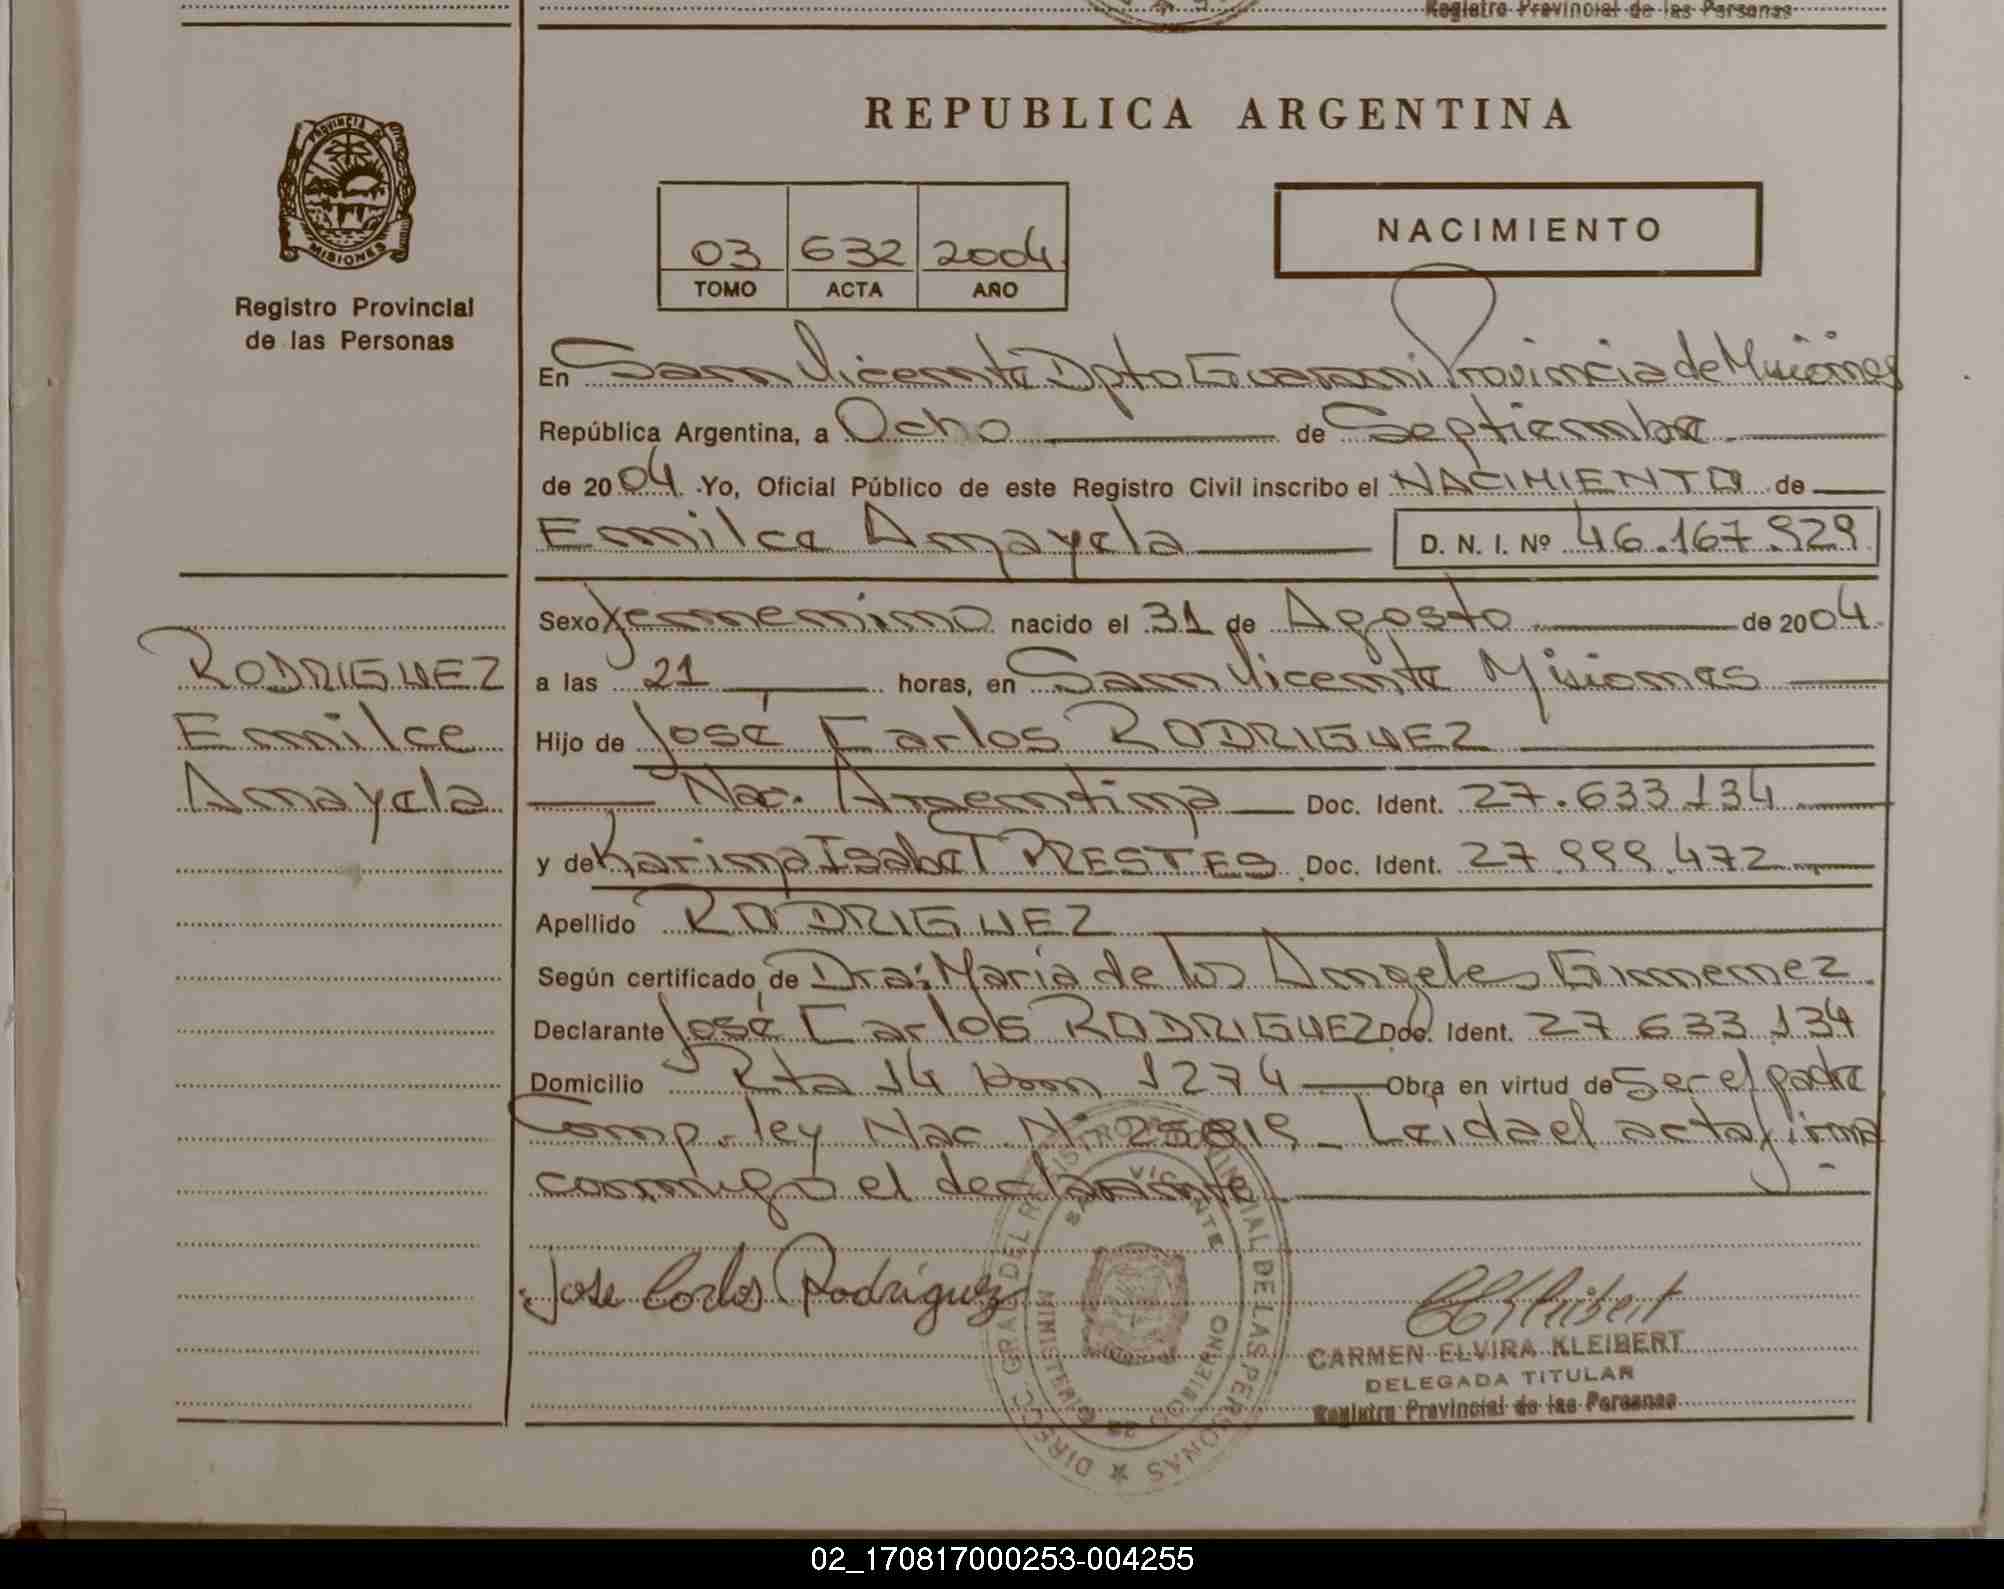 Registro Provincial de las Personas
REPUBLICA ARGENTINA
PROVINCIA DE
MISIONES
Registro Provincial
de las Personas
03 632 2004
TOMO ACTA AÑO
NACIMIENTO
En San Vicente Dpto Guarani Provincia de Misiones
República Argentina, a Ocho de Septiembre
de 2004 Yo, Oficial Público de este Registro Civil inscribo el NACIMIENTO de
Emilce Amayela D. N. I. Nº 46.167.929
Sexo femenino nacido el 31 de Agosto de 2004
a las 21 horas, en San Vicente Misiones
Hijo de José Carlos RODRIGUEZ
Nac. Argentina Doc. Ident. 27.633.134
y de Karina Isabel PRESTES Doc. Ident. 27.999.472
Apellido RODRIGUEZ
Según certificado de Dra: María de los Angeles Gimenez
Declarante José Carlos RODRIGUEZ Doc. Ident. 27.633.134
Domicilio Rta 14 Km 1274 Obra en virtud de Ser el padre
Comp. ley Nac. Nº 25819 - Leida el acta firma
conmigo el declarante
RODRIGUEZ
Emilce
Amayela
Jose Carlos Rodriguez
DIRECC. GRAL. DEL REGISTRO PROVINCIAL DE LAS PERSONAS
SAN VICENTE
MINISTERIO DE GOBIERNO
CARMEN ELVIRA KLEIBERT
DELEGADA TITULAR
Registro Provincial de las Personas
02_170817000253-004255